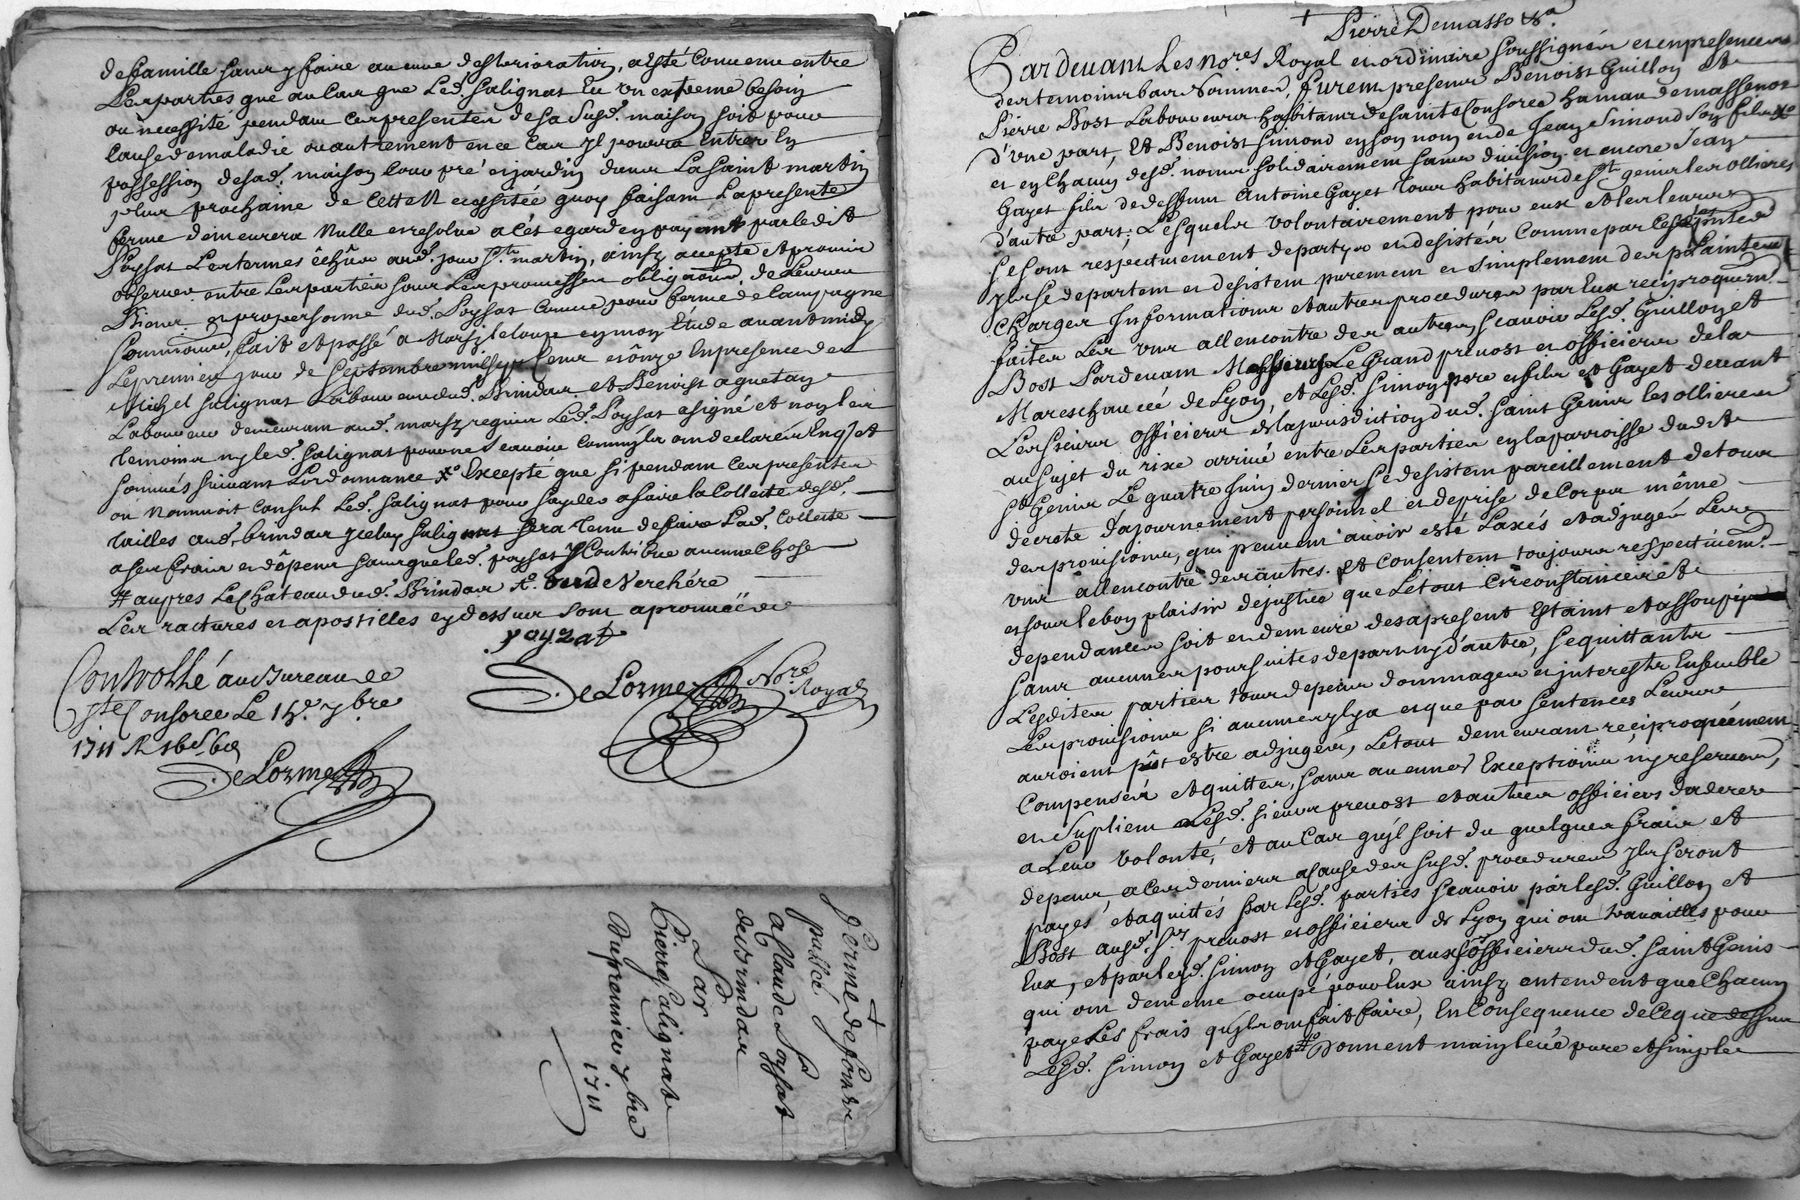 de famille sans y faire aucune desterioration, a esté convenu entre
Les parties que au cas que Led. Salignat Eu un extreme besoin
ou necessité pendant ces presentes de sa susd. maison soit pour
cause de maladie ou autrement en ce cas Il pourra Entrer En
possession desad. maison cour pré et jardin dans La saint martin
plus prochaine de cette Necessitée quoy faisant La presente
ferme demeurera Nulle et resolue a cét egard en payant par ledit
Poyzat Les termes êchûs aud. jour St. martin, ainsy accepté et promis
observer entre Les parties sous Les promesses obligaons. de Leurs
Biens et propersonne dud. Poyzat comme pour ferme de Campagne
sommaire, fait et passé à Marsy le loup en mon Etude avant midy
Le premier jour de Septembre mil sept Cent et ônze En presence de
Michel Salignat Laboureur dud. Brindas et Benoist aguetan
Laboureur demeurant aud. marsy requis Led. Poyzat a signé et non les
temoins ny led. Salignat pour ne sçavoir comme ils ont declarés Enqs et
sommés suivant Lordonnance Excepté que si pendant Les presentes
on Nommoit Consul Led. Salignat pour faire la Collecte desd.
tailles aud. brindas iceluy Salignat sera tenu de faire Lad. Collecte
a ses frais et dêpens sans que led. poyzat y Contribue aucune chose
aupres Le Château dud. Brindas de Verchére
Les ratures et apostilles cy dessus sont aprouvées
payzat
DeLorme Nore. Royal
Controllé au Bureau de
Ste Consorce Le 15e. 7bre
1711
DeLorme
+
Ferme de fonds
passé
a Claude Poyzat
de Brindas
Par
Pierre Salignat
Du premier 7bre
1711
+ Pierre Demasso
Pardevant Les nores. Royal et ordinaire soussignés et en presence
des temoins bas Nommés, furent presens Benoist Guillon et
Pierre Bost Laboureurs habitans de Sainte Consorce hameau de massenot
d'une part, Et Benoist Simond en son nom et de Jean Simond son fils
et en chacun desd. noms solidairement sans division et encore Jean
Gayet fils de deffunt Antoine Gayet Tous habitans de St. genis les ollieres
d'autre part: Lesquels volontairement pour eux et les leurs
se sont respectivement departys et desistés comme par ces presentes
ils se departent et desistent purement et simplement des plaintes
charges Informations et autres procedures par Eux reciproquemt.
faites Les uns allencontre des autres, scavoir Lesd. Guillon et
Bost Pardevant Messieurs Le Grand prevost et officiers de la
Mareschaucée de Lyon, et Lesd. Simon pere et fils et Gayet devant
Les sieurs officiers de la jurisdiction dud. Saint Genis les ollieres
au sujet du rixe arrivé entre Les parties en la parroisse dudit
St. Genis Le quatre Juin dernier se desistent pareillement de tous
décrets d'ajournement personnel et de prise de Corps même
des provisions, qui peuvent avoir esté Taxés et adjugés Les
uns allencontre des autres. Et consentent toujours respectivemt.
et sous le bon plaisir de justice que Le tout circonstances et
dependances soit et demeure des apresent Estaint et assoupi
sans aucunes poursuites de part ny d'autre, se quittants
Lesdites parties tous depens dommages et interests Ensemble
Les provisions si aucunes il y a et que par sentences Leurs
auroient pût estre adjugées, Le tout demeurant reciproquement
Compensés et quittes, sans aucunes Exceptions ny reserves,
et suplient Lesd. sieurs prevost et autres officiers d'aderer
a Leur volonté, et au cas qu'il soit du quelques frais et
depens, a ces derniers acause des susd. procedures ils seront
payés et aquittés par Lesd. parties scavoir par Lesd. Guillon et
Bost ausd. Srs. prevost et officiers de Lyon qui ont travaillés pour
Eux, et par lesd. Simon et Gayet, aux officiers dud. Saint Genis
qui ont de meme ocupé pour Eux ainsy entendent que Chacun
paye Les frais qu'ils ont fait faire, En Consequence de ce que dessus
Lesd. Simon et Gayet Donnent mainlevée pure et simple